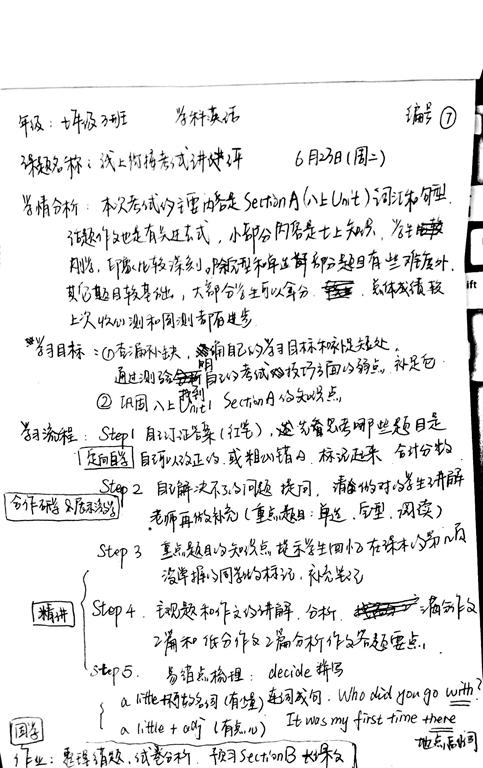 年级：七年级3班 学科英语 编号⑦
课题名称：线上衔接考试讲评 6月23日（周二）
学情分析：本次考试的主要内容是SectionA（八上Unit1）词汇和句型.
话题作文也是有关过去式，小部分内容是七上知识，学生
刚学，印象比较深刻。除完型和单选部分题目有些难度外
其它题目较基础，大部分学生可以拿分. 总体成绩较
上次收心测和周测都有进步
学习目标：①查漏补缺，明自己的学习目标和不足处，
通过测验找到自己的考试技巧方面的弱点，补足它
② 巩固八上Unit1 SectionA的知识点
学习流程：Step1 自己订正答案（红笔），先看见考哪些题目是
定向自学 自己可以改正的，或粗心错的，标记起来，合计分数
Step 2 自己解决不了的问题 提问，请会做的对的学生讲解
合作研学及展示激学 老师再做补充（重点题目：单选，句型，阅读）
Step 3 重点题目的知识点，提示学生回忆在课本的第几页
没掌握的同学的标记，补充笔记
精讲 Step 4. 主观题和作文的讲解，分析. 满分作文
2篇和低分作文2篇分析作文答题要点.
Step 5. 易错点梳理：decide 拼写
a little+不可数名词（有些） 连词成句. Who did you go with?
a little + adj （有点儿） It was my first time there
固学 地点副词
作业：整理错题，试卷分析. 预习SectionB 课文